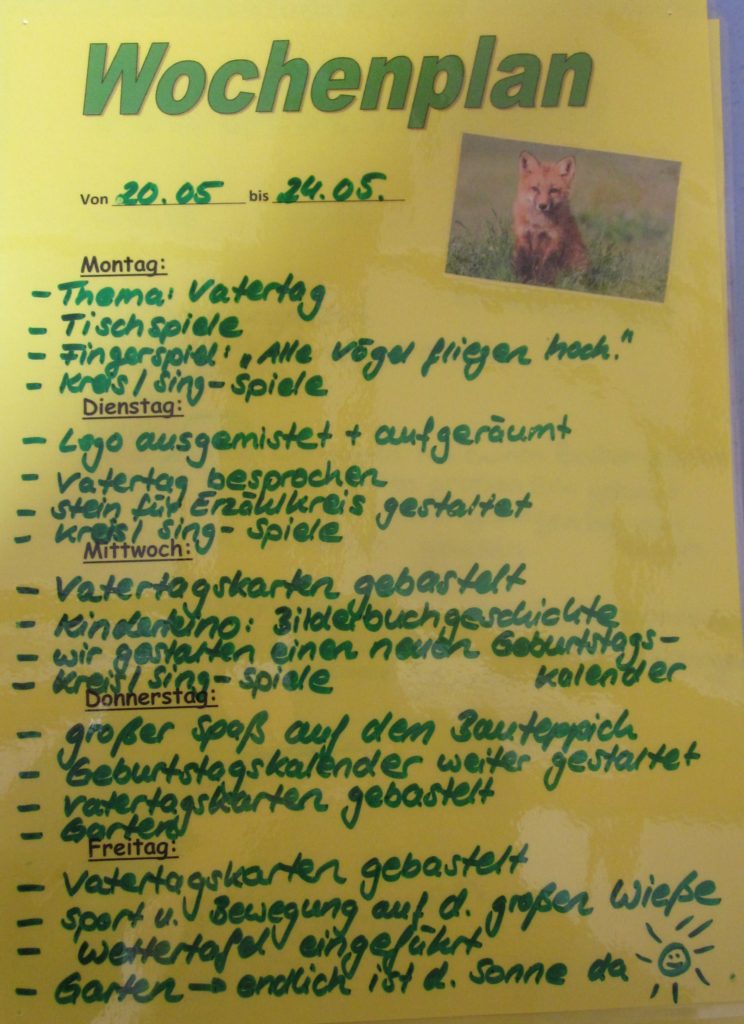 Wochenplan
Von 20.05 bis 24.05.
Montag:
- Thema: Vatertag
- Tischspiele
- Fingerspiel: „Alle Vögel fliegen hoch."
- Kreis/Sing-Spiele
Dienstag:
- Logo ausgemistet + aufgeräumt
- Vatertag besprochen
- Stein für Erzählkreis gestaltet
- Kreis/Sing-Spiele
Mittwoch:
- Vatertagskarten gebastelt
- Kinderkino: Bilderbuchgeschichte
- wir gestarten einen neuen Geburtstags-
kalender
- Kreis/Sing-Spiele
Donnerstag:
- großer Spaß auf dem Bauteppich
- Geburtstagskalender weiter gestaltet
- Vatertagskarten gebastelt
- Garten
Freitag:
- Vatertagskarten gebastelt
- Sport u. Bewegung auf d. großen Wieße
- Wettertafel eingeführt
- Garten → endlich ist d. Sonne da